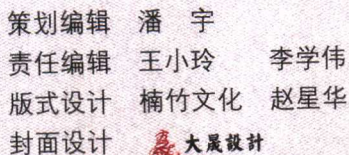 策划编辑 潘 宇
责任编辑 王小玲 李学伟
版式设计 楠竹文化 赵星华
封面设计 大晟設計